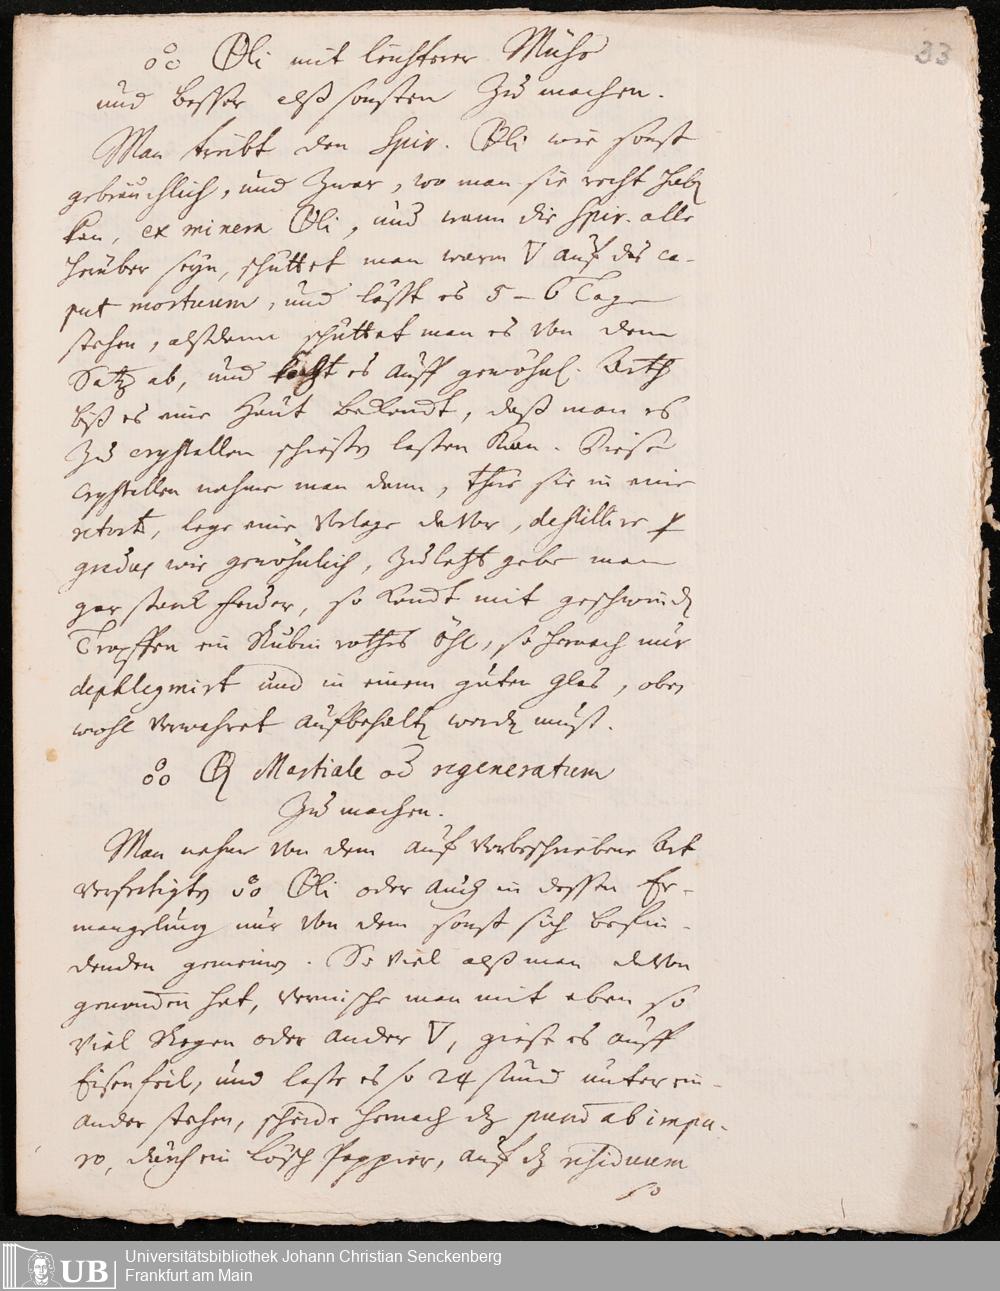 33
Oli mit leichterer Mühe
und besser alß sonsten zu machen.
Man treibt den Spir. Oli wie sonst
gebräuchlich, und zwar, wo man sie recht habē
kan, ex minera Oli, und wann die Spir. alle
herüber seyn, schüttet man warm ▽ auf das ca-
put mortuum, und läßt es 5 - 6 Tage
stehen, alßdann schüttet man es von dem
Satz ab, und kocht es auff gewöhnl. Arth
biß es eine Haut bekomt, daß man es
zu crystallen schiesen lassen kan. Diese
Crystallen nehme man dann, thue sie in eine
retort, lege eine Vorlage davor, destillire p
gradus wie gewöhnlich, zuletzt gebe man
gar starck Feuer, so komt mit geschwinden
Tropffen ein Rubin rothes Öhl, so hernach nur
dephlegmirt und in einem guten Glas, oben
wohl verwahret aufbehalten werden muß.
Martiale od regeneratum
zu machen.
Man nehme von dem auf vorbeschriebene Art
verfertigten Oli oder auch in dessen Er-
mangelung nur von dem sonst sich befin-
denden gemeinen. So viel alß man davon
genommen hat, vermische man mit eben so
viel Regen oder ander ▽, giese es auff
Eisenfeil, und lasse es so 24 stund unter ein-
ander stehen, scheide hernach das purum ab impu-
ro, durch ein Lösch Pappier, auf das residuum
so
UB
Universitätsbibliothek Johann Christian Senckenberg
Frankfurt am Main